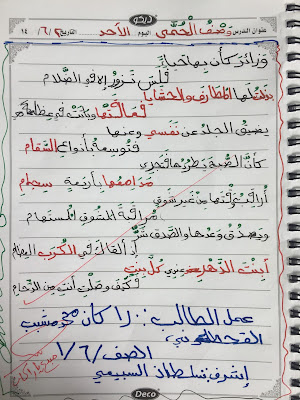 عنوان الدرس وصف الحمى اليوم الأحد التاريخ ٦/٢/ ١٤
وزائرتي كأن بها حياءً
فليس تزور إلا في الظلام
بذلت لها المطارف والحشايا
فعافتها وباتت في عظامي
يضيق الجلد عن نفسي وعنها
فتوسعه بأنواع السقام
كأن الصبح يطردها فتجري
مدامعها بأربعة سجام
أراقب وقتها من غير شوق
مراقبة المشوق المستهام
ويصدق وعدها والصدق شر
إذا ألقاك في الكرب العظام
أبنت الدهر عندي كل بنت
فكيف وصلت أنت من الزحام
عمل الطالب : راكان محمد شبيب
القحطاني
الصف / ٦ / ١
إشراف سلطان السبيعي
Deco